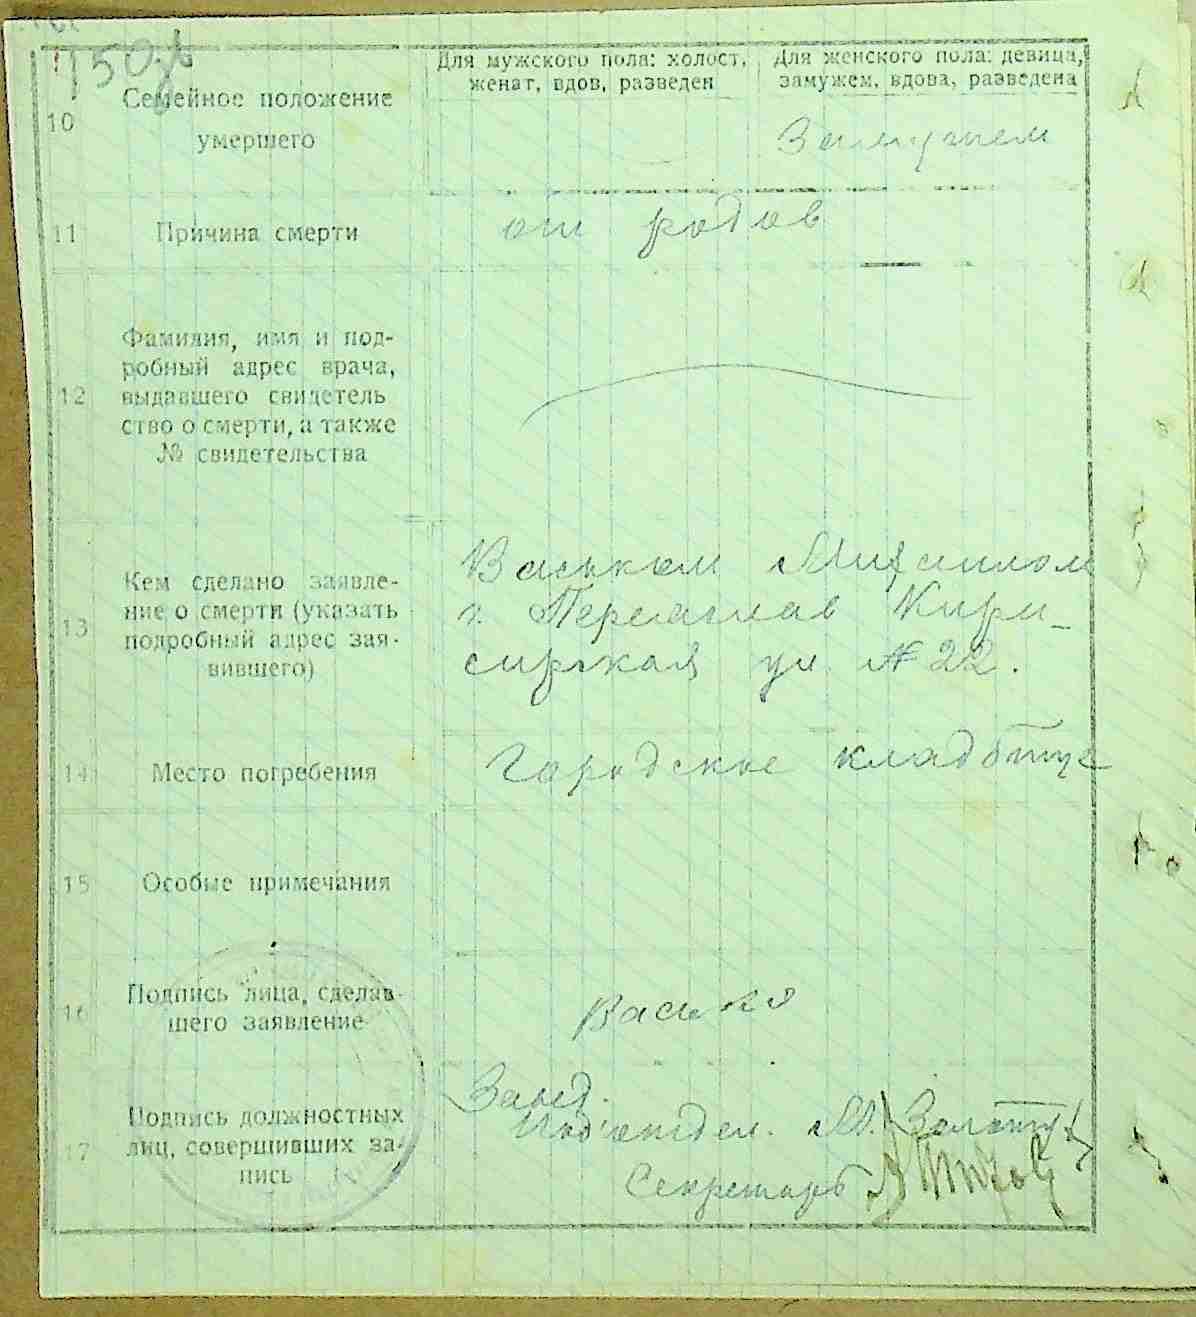 150
Для мужского пола: холост,
женат, вдов, разведен
Для женского пола: девица,
замужем, вдова, разведена
10
Семейное положение
умершего
Замужем
11
Причина смерти
от родов
12
Фамилия, имя и под-
робный адрес врача,
выдавшего свидетель
ство о смерти, а также
№ свидетельства
13
Кем сделано заявле-
ние о смерти (указать
подробный адрес зая-
вившего)
Васьком Михаилом
г. Переяслав
ул № 22.
14
Место погребения
Городское кладбище
15
Особые примечания
16
Подпись лица, сделав-
шего заявление
Васько
17
Подпись должностных
лиц, совершивших за-
пись
Завед.
Под'отдел. М.
Секретарь